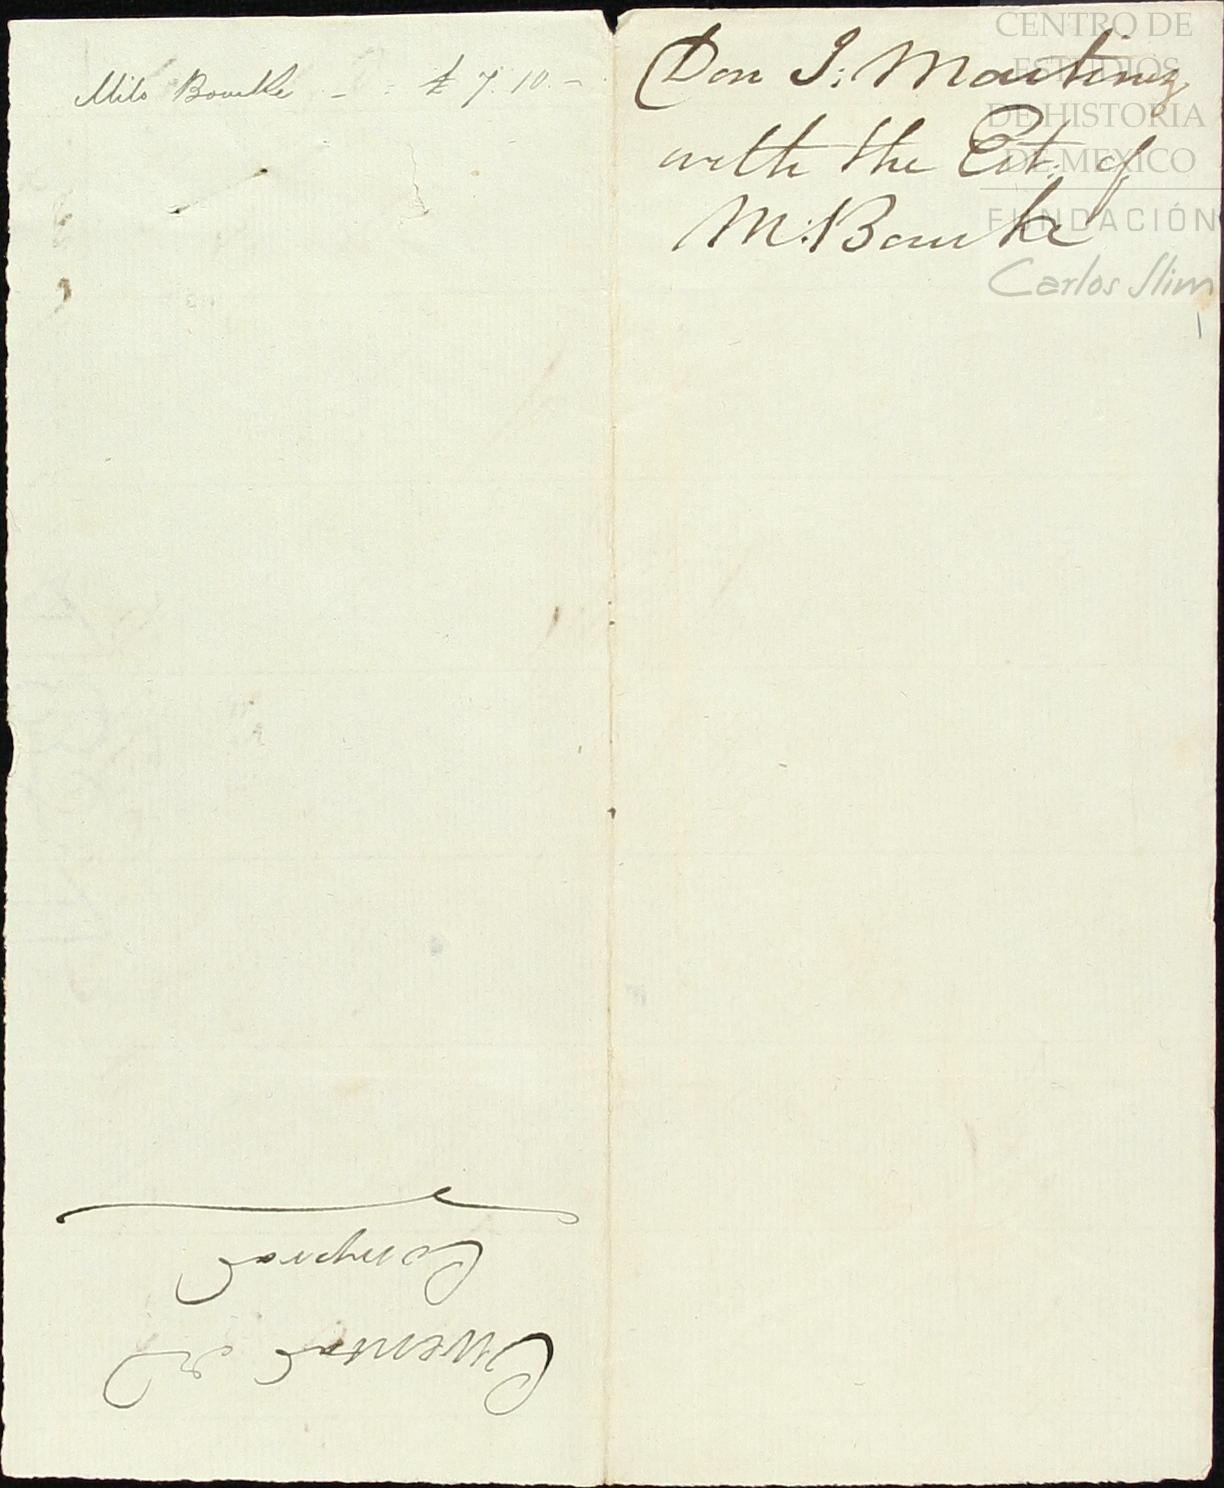 Milo Bourke - - £ 7. 10. -
Don J: Martinez
with the Est: of
M: Bourke
Cuenta de
Compra
CENTRO DE
ESTUDIOS
DE HISTORIA
DE MEXICO
FUNDACIÓN
Carlos Slim